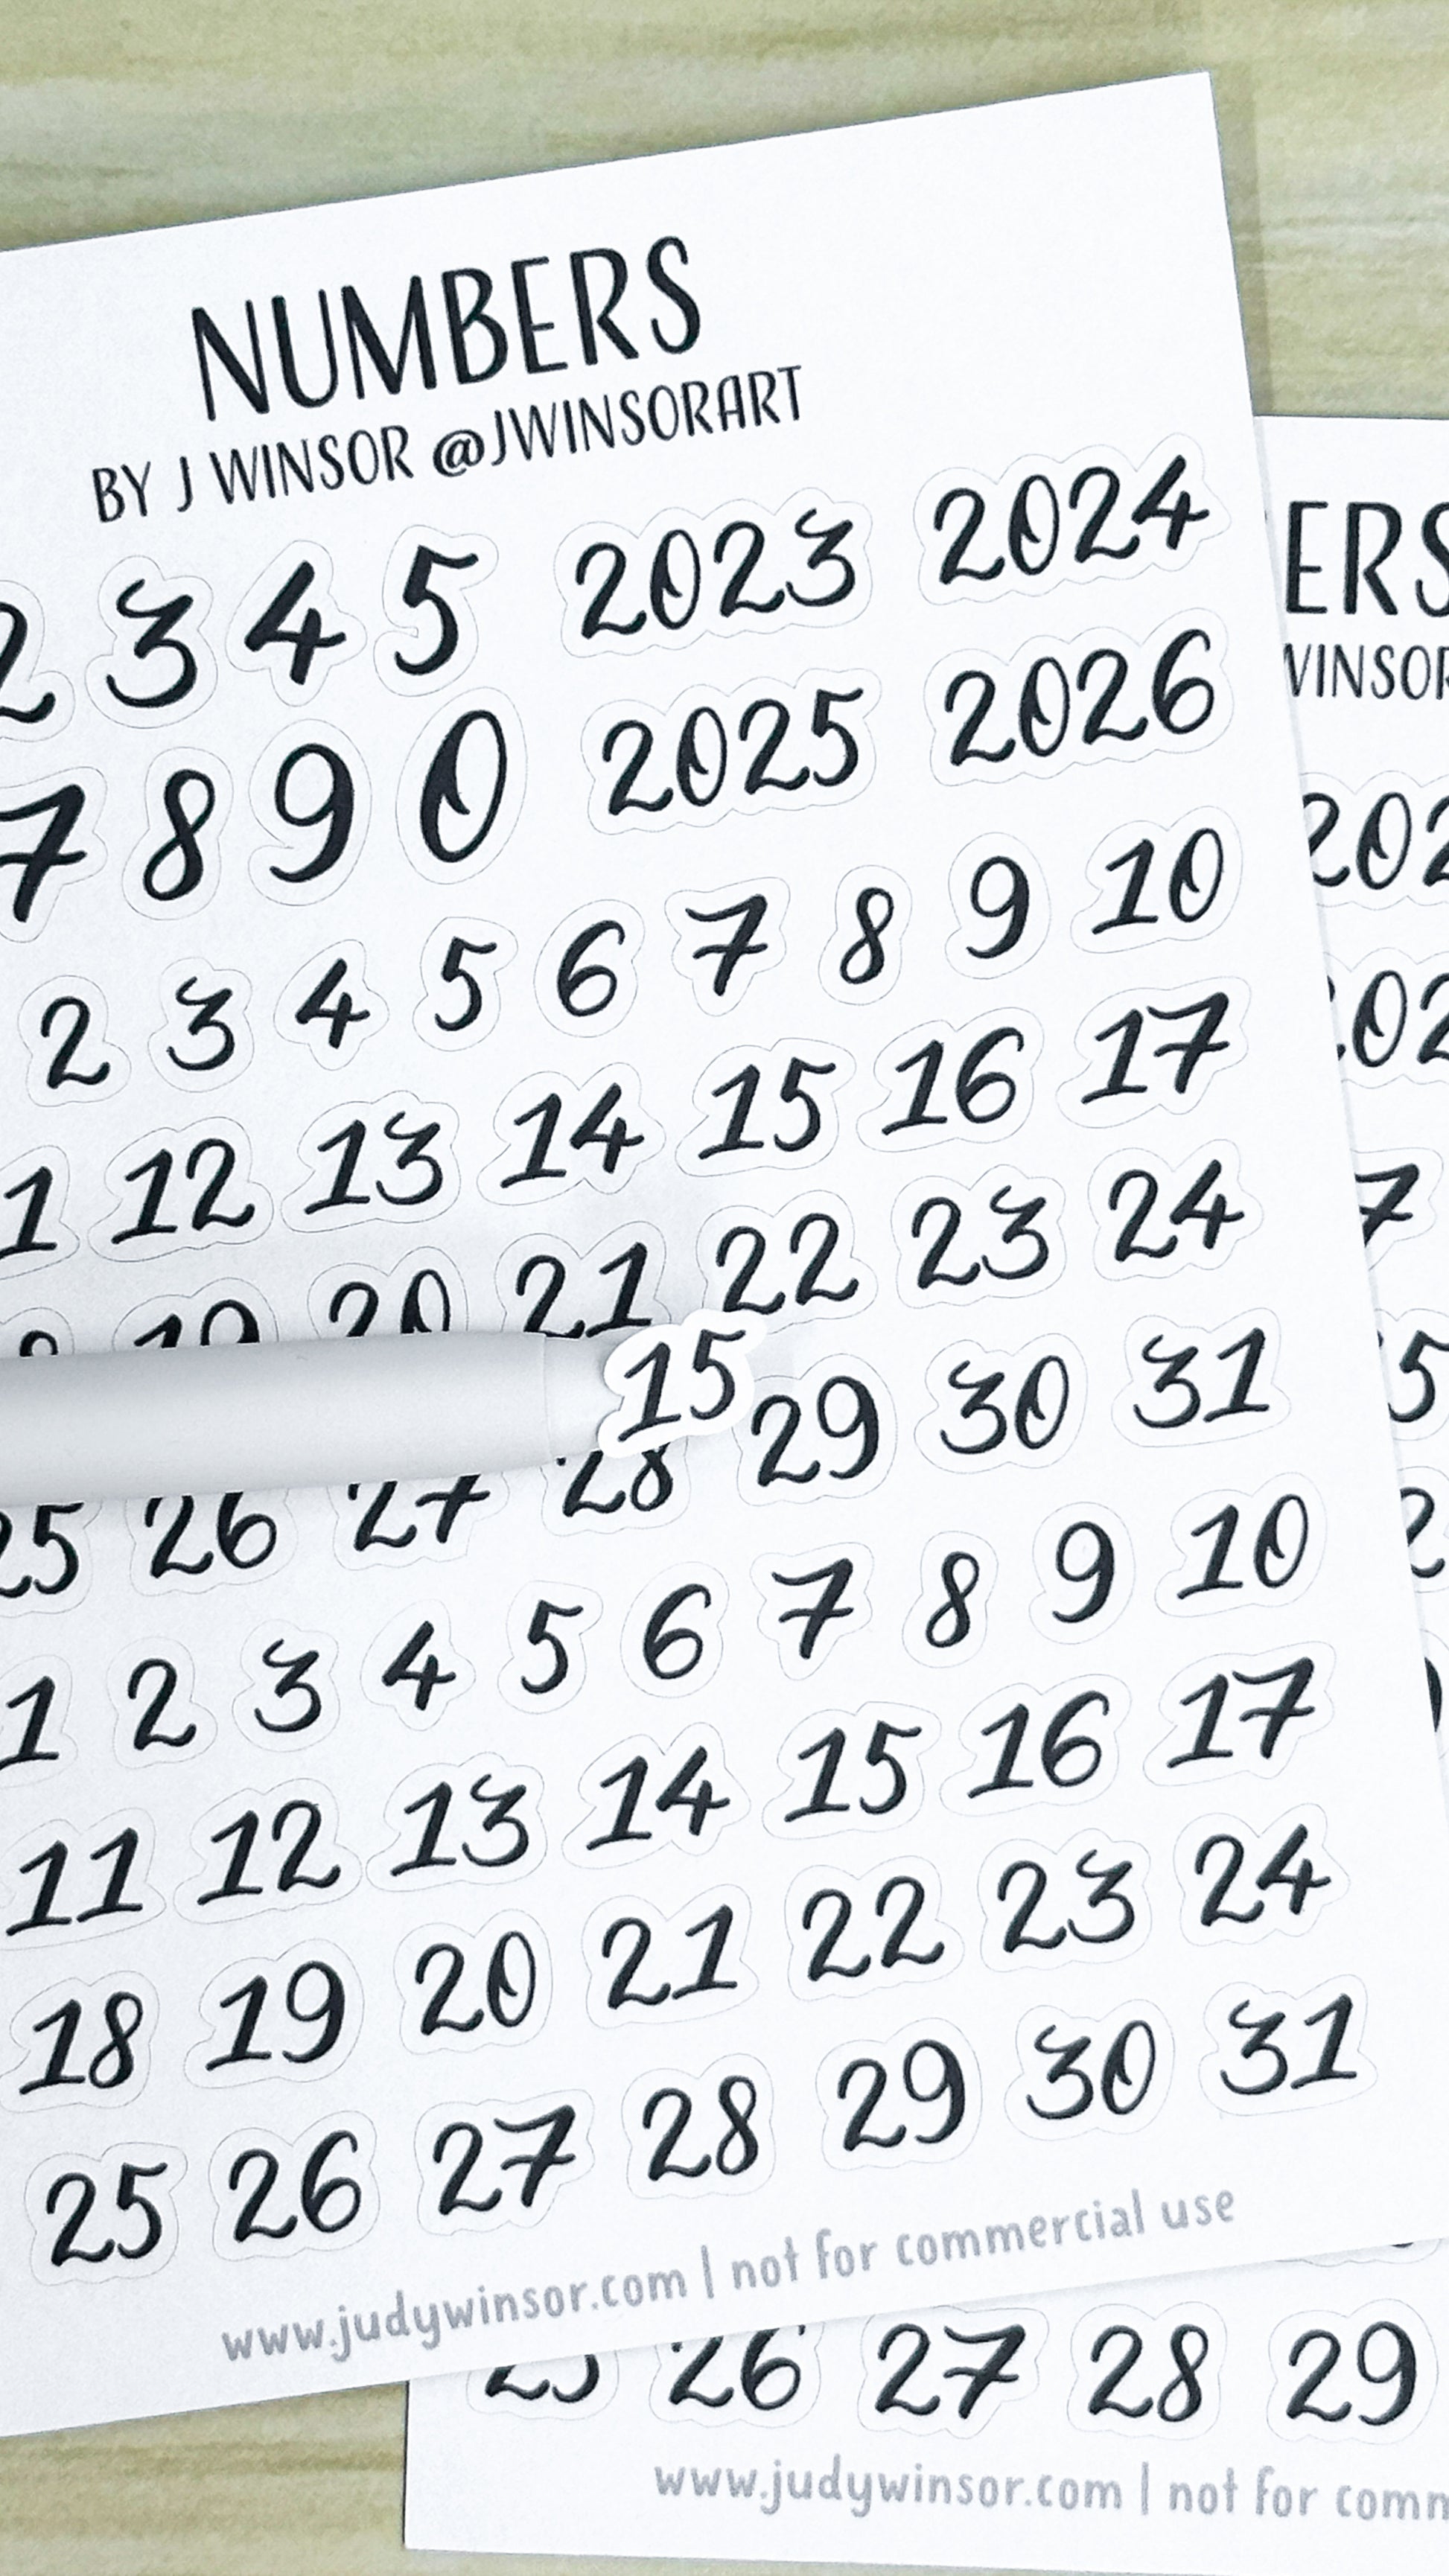 NUMBERS
BY J WINSOR @JWINSORART
2 3 4 5 2023 2024
7 8 9 0 2025 2026
2 3 4 5 6 7 8 9 10
1 12 13 14 15 16 17
19 20 21 22 23 24
15
25 26 27 28 29 30 31
1 2 3 4 5 6 7 8 9 10
11 12 13 14 15 16 17
18 19 20 21 22 23 24
25 26 27 28 29 30 31
www.judywinsor.com | not for commercial use
ERS
WINSOR
202
202
7
5
2
25 26 27 28 29
www.judywinsor.com | not for comm